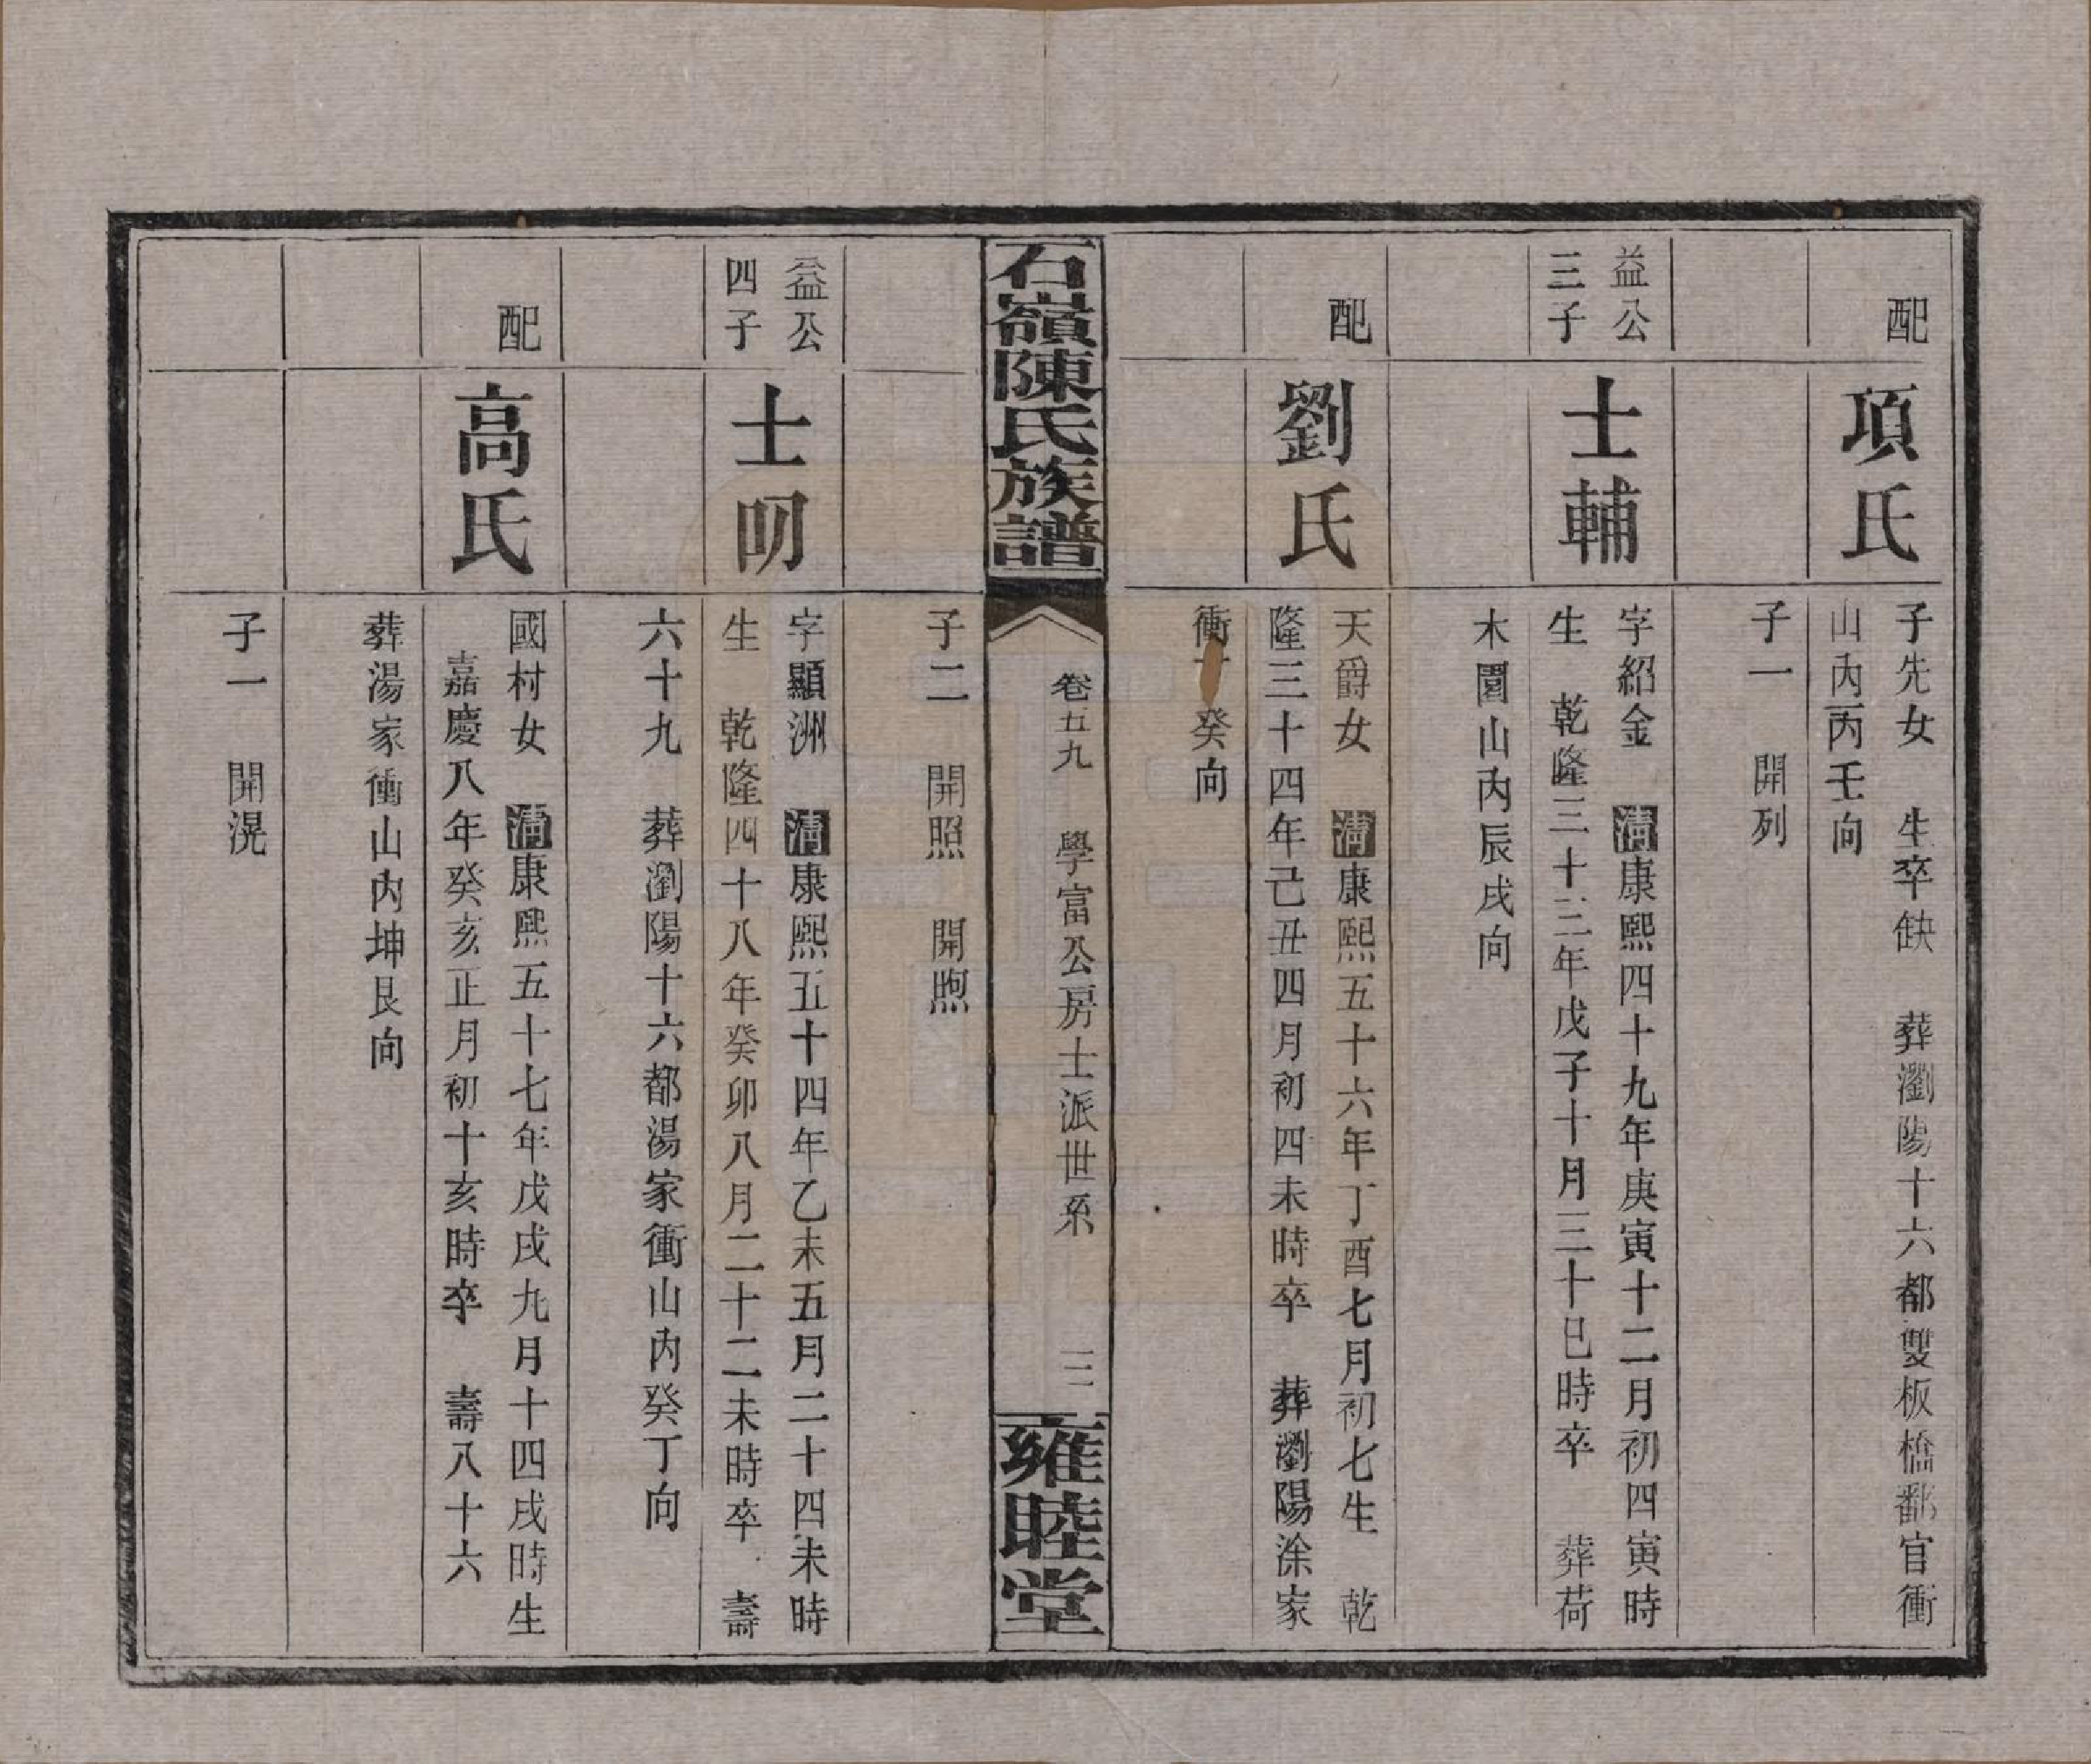 配
項氏
子先女　生卒缺　葬瀏陽十六都雙板橋鄱官衝
山內丙壬向
子一　開列
益公
三子
士輔
字紹金　清康熙四十九年庚寅十二月初四寅時
生　乾隆三十三年戊子十月三十巳時卒　葬荷
木園山內辰戌向
配
劉氏
天爵女　清康熙五十六年丁酉七月初七生　乾
隆三十四年己丑四月初四未時卒　葬瀏陽涂家
衝　癸向
石嶺陳氏族譜
卷五九　學富公房士派世系　三
雍睦堂
子二　開照　開煦
益公
四子
士明
字顯洲　清康熙五十四年乙未五月二十四未時
生　乾隆四十八年癸卯八月二十二未時卒　壽
六十九　葬瀏陽十六都湯家衝山內癸丁向
配
高氏
國村女　清康熙五十七年戊戌九月十四戌時生
嘉慶八年癸亥正月初十亥時卒　壽八十六
葬湯家衝山內坤艮向
子一　開滉